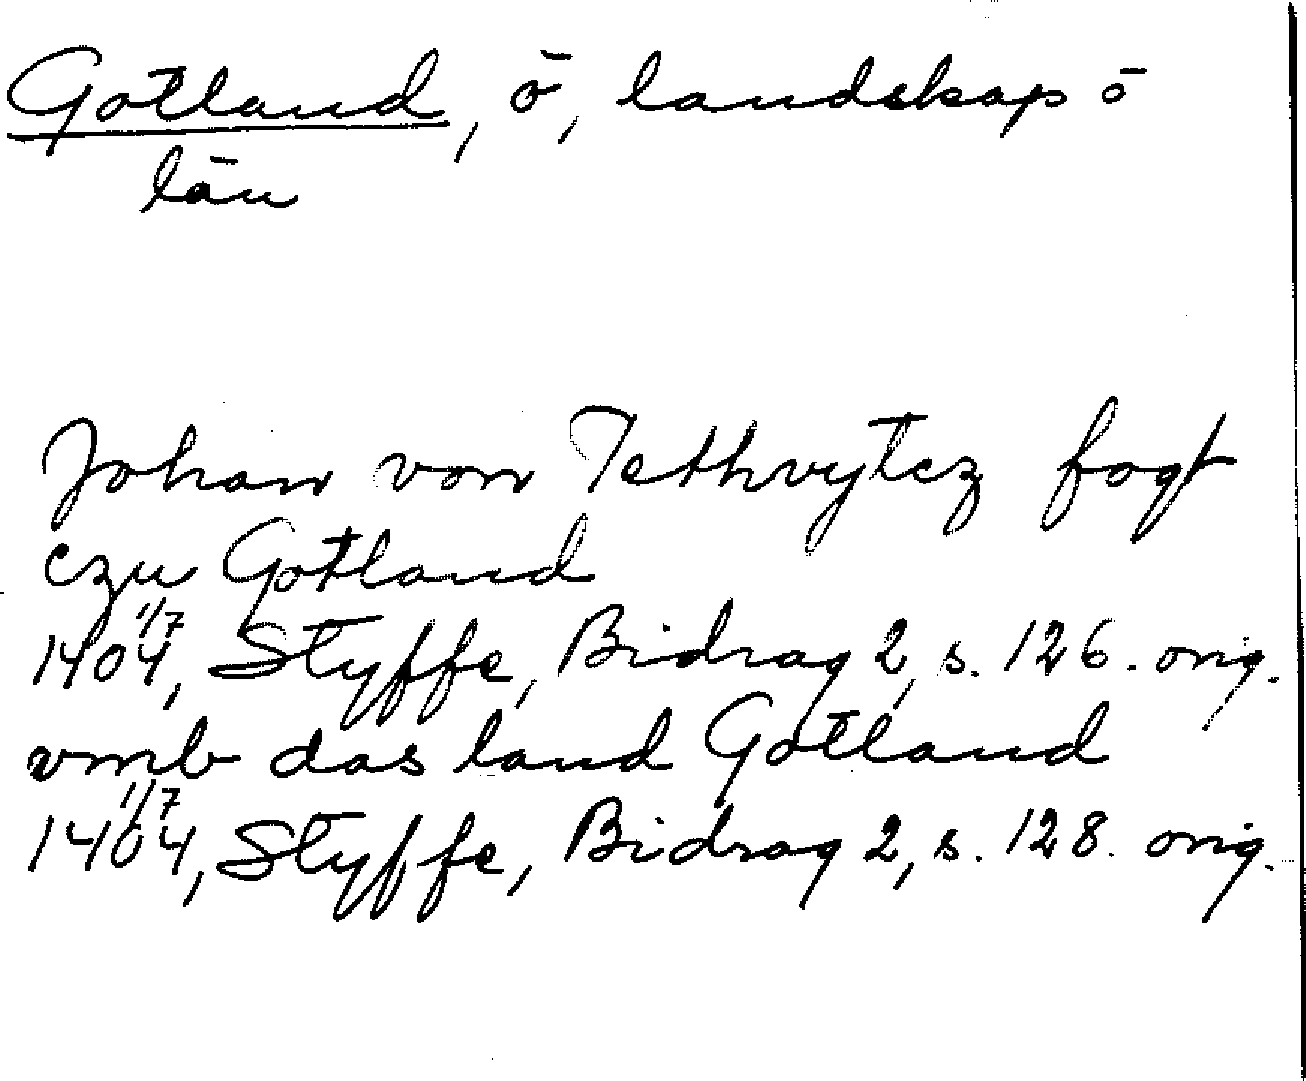 Gotland, ö, landskap ō
län
Johan von Tethvytcz fogt
czu Gotland
1404 1/7, Styffe, Bidrag 2, s. 126. orig.
vmb das land Gotland
1404 1/7, Styffe, Bidrag 2, s. 128. orig.